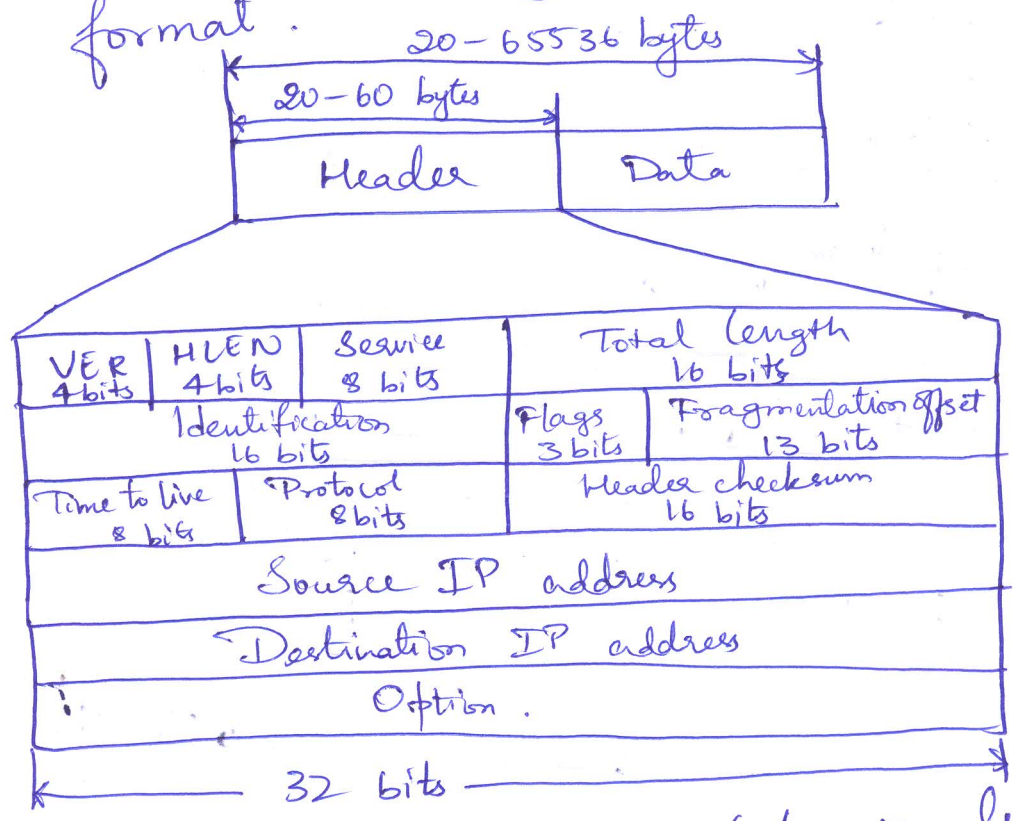 format.
20-65536 bytes
20-60 bytes
Header Data
VER 4 bits HLEN 4 bits Service 8 bits Total length 16 bits
Identification 16 bits Flags 3 bits Fragmentation offset 13 bits
Time to live 8 bits Protocol 8 bits Header checksum 16 bits
Source IP address
Destination IP address
Option.
32 bits